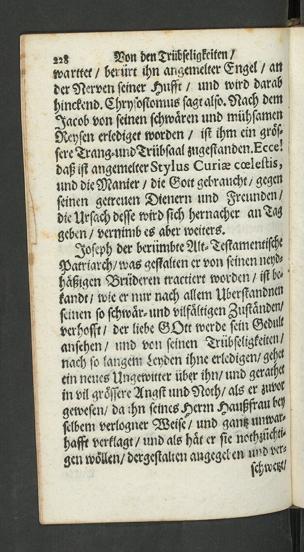 228 Von den Trübseligkeiten /
warttet / berürt ihn angemelter Engel / an
der Nerven seiner Hufft / und wird darab
hinckend. Chrysostomus sagt also. Nach dem
Jacob von seinen schwären und mühsamen
Reysen erlediget worden / ist ihm ein grös-
sere Trang- und Trübsaal zugestanden. Ecce!
daß ist angemelter Stylus Curiæ cœlestis,
und die Manier / die Gott gebraucht / gegen
seinen getreuen Dienern und Freunden /
die Ursach desse wird sich hernacher an Tag
geben / vernimb es aber weiters.
Joseph der berümbte Alt-Testamentische
Patriarch / was gestalten er von seinen neyd-
häßigen Brüderen tractiert worden / ist be-
kandt / wie er nur nach allem Uberstandnen
seinen so schwär- und vilfältigen Zuständen /
verhofft / der liebe GOtt werde sein Gedult
ansehen / und von seinen Trübseligkeiten /
nach so langem Leyden ihne erledigen / gehet
ein neues Ungewitter über ihn / und gerathet
in vil grössere Angst und Noth / als er zuvor
gewesen / da ihn seines Herrn Haußfrau bey
selbem verlogner Weise / und gantz unwar-
hafft verklagt / und als hät er sie nothzüchti-
gen wöllen / dergestalten angegeben und ver-
schwetzt /